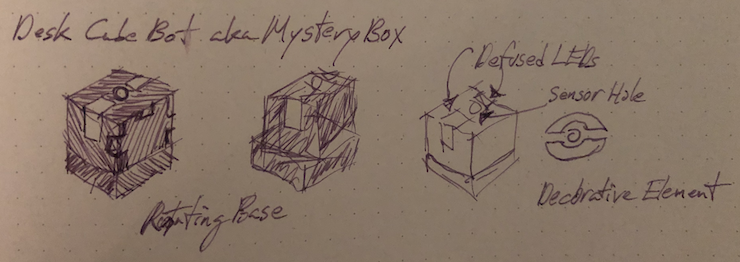 Desk Cube Bot aka Mystery Box
Defused LEDs
Sensor Hole
Rotating Base
Decorative Element